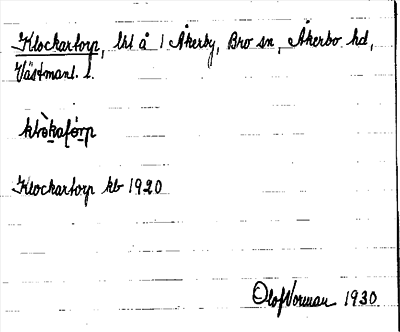 Klockartorp, lht å 1 Åkerby, Bro sn, Åkerbo hd,
Västmanl. l.
Klockartorp kb 1920
Olof Vorman 1930